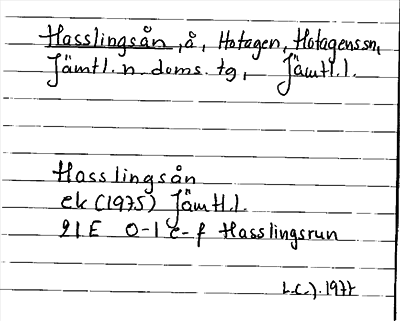 Hasslingsån, å, Hotagen, Hotagenssn,
Jämtl. n. doms. tg, Jämtl. l.
Hasslingsån
ek (1975) Jämtl. l.
21E 0-1 e-f Hasslingsrun